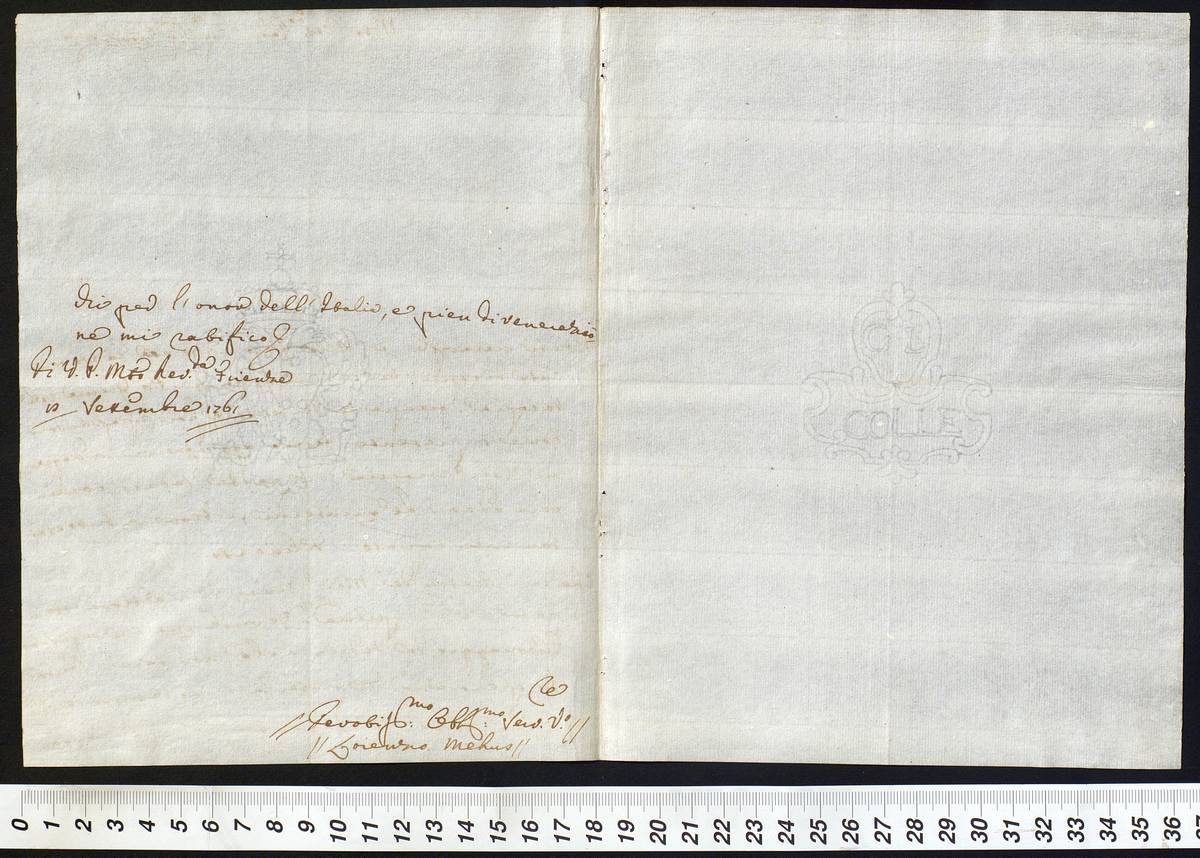 dio per l'onor dell'Italia, e pien di venerazio
ne mi ratifico
Di V. P. M.to Rev.da Firenze
Settembre 1761
re
Devotiss.mo Obb.mo Serv. V.o
Lorenzo Mehus
COLLE
0 1 2 3 4 5 6 7 8 9 10 11 12 13 14 15 16 17 18 19 20 21 22 23 24 25 26 27 28 29 30 31 32 33 34 35 36 37